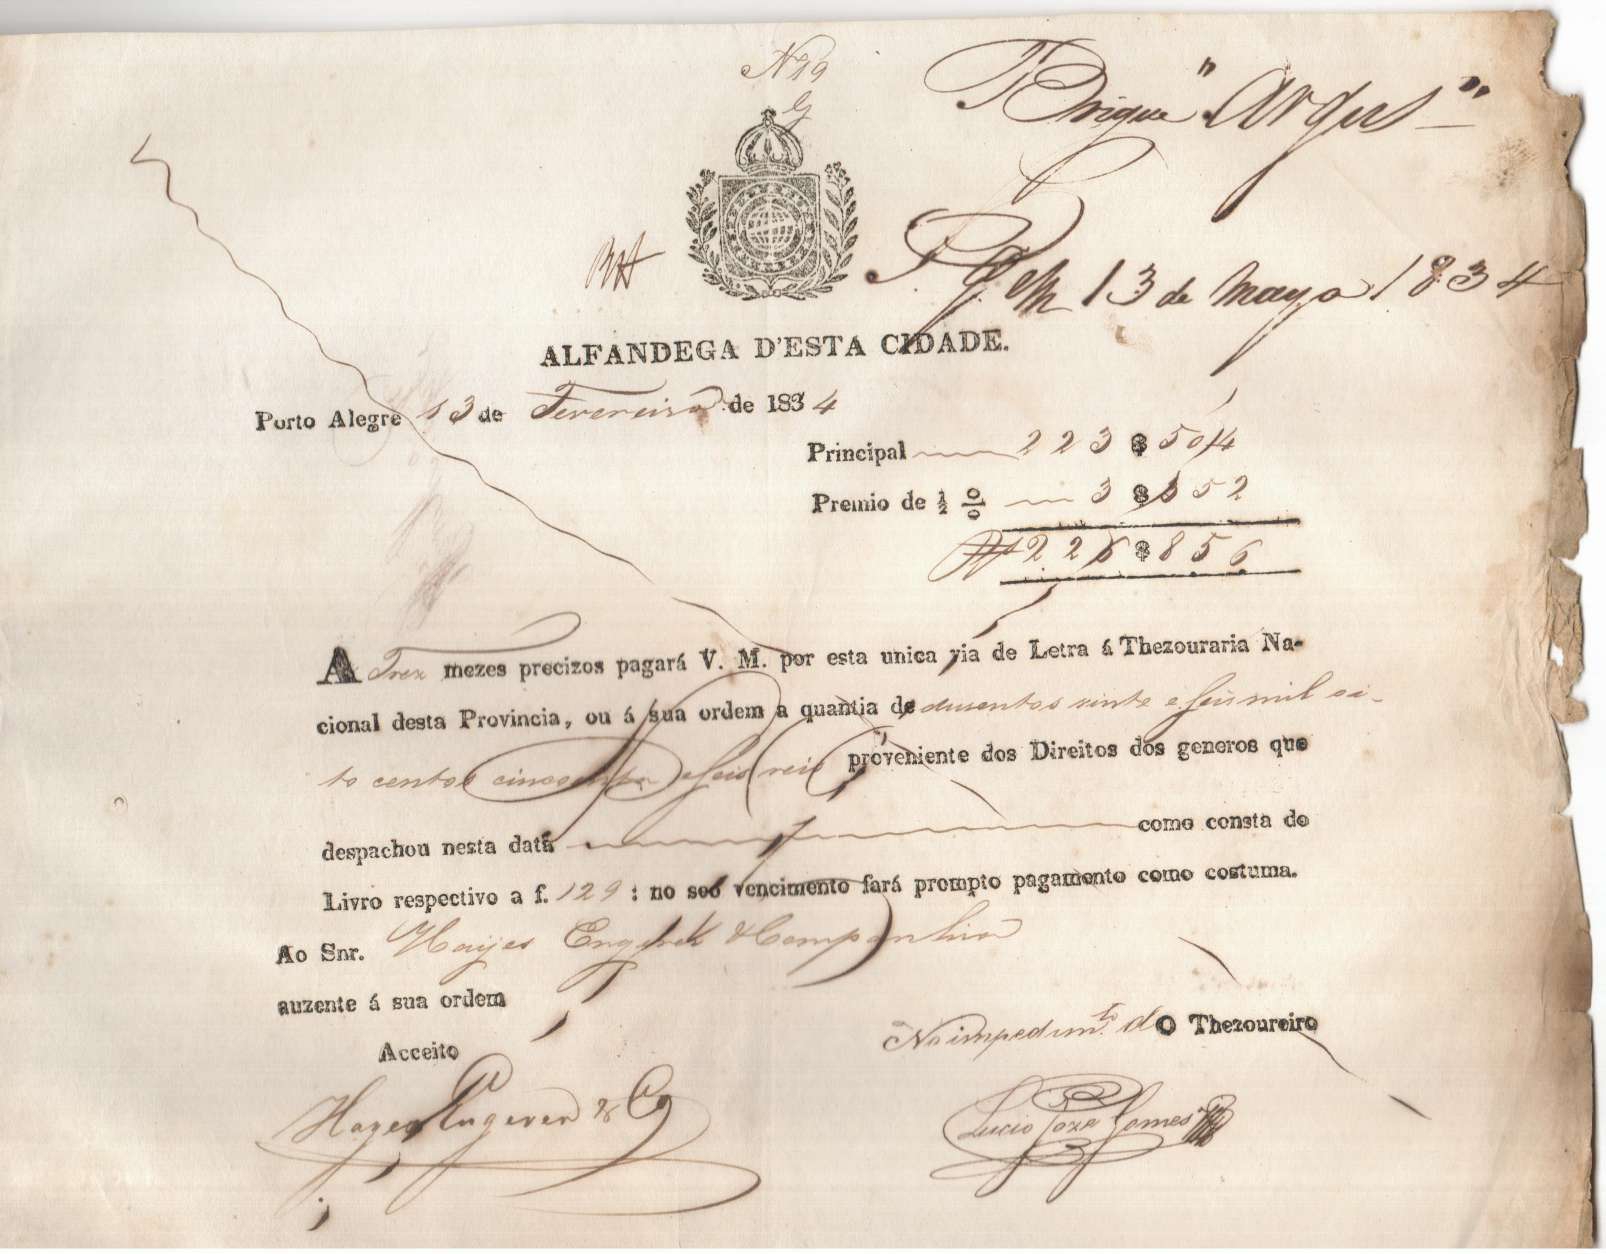 N 29
G
Brigue "Argus"
Pg em 13 de Mayo 1834
ALFANDEGA D'ESTA CIDADE.
Porto Alegre 13 de Fevereiro de 1834
Principal 223$504
Premio de ½ 0/0 3$352
226$856
A Trez mezes precizos pagará V. M. por esta unica via de Letra á Thezouraria Na-
cional desta Provincia, ou á sua ordem a quantia de dusentos vinte e seis mil oi-
to centos cincoenta e seis reis proveniente dos Direitos dos generos que
despachou nesta data como consta do
Livro respectivo a f. 129 : no seo vencimento fará prompto pagamento como costuma.
Ao Snr. Hayes Engerer & Companhia
auzente á sua ordem
No impedimto. d O Thezoureiro
Acceito
Hayes Engerer & Co
Lucio Joze Gomes